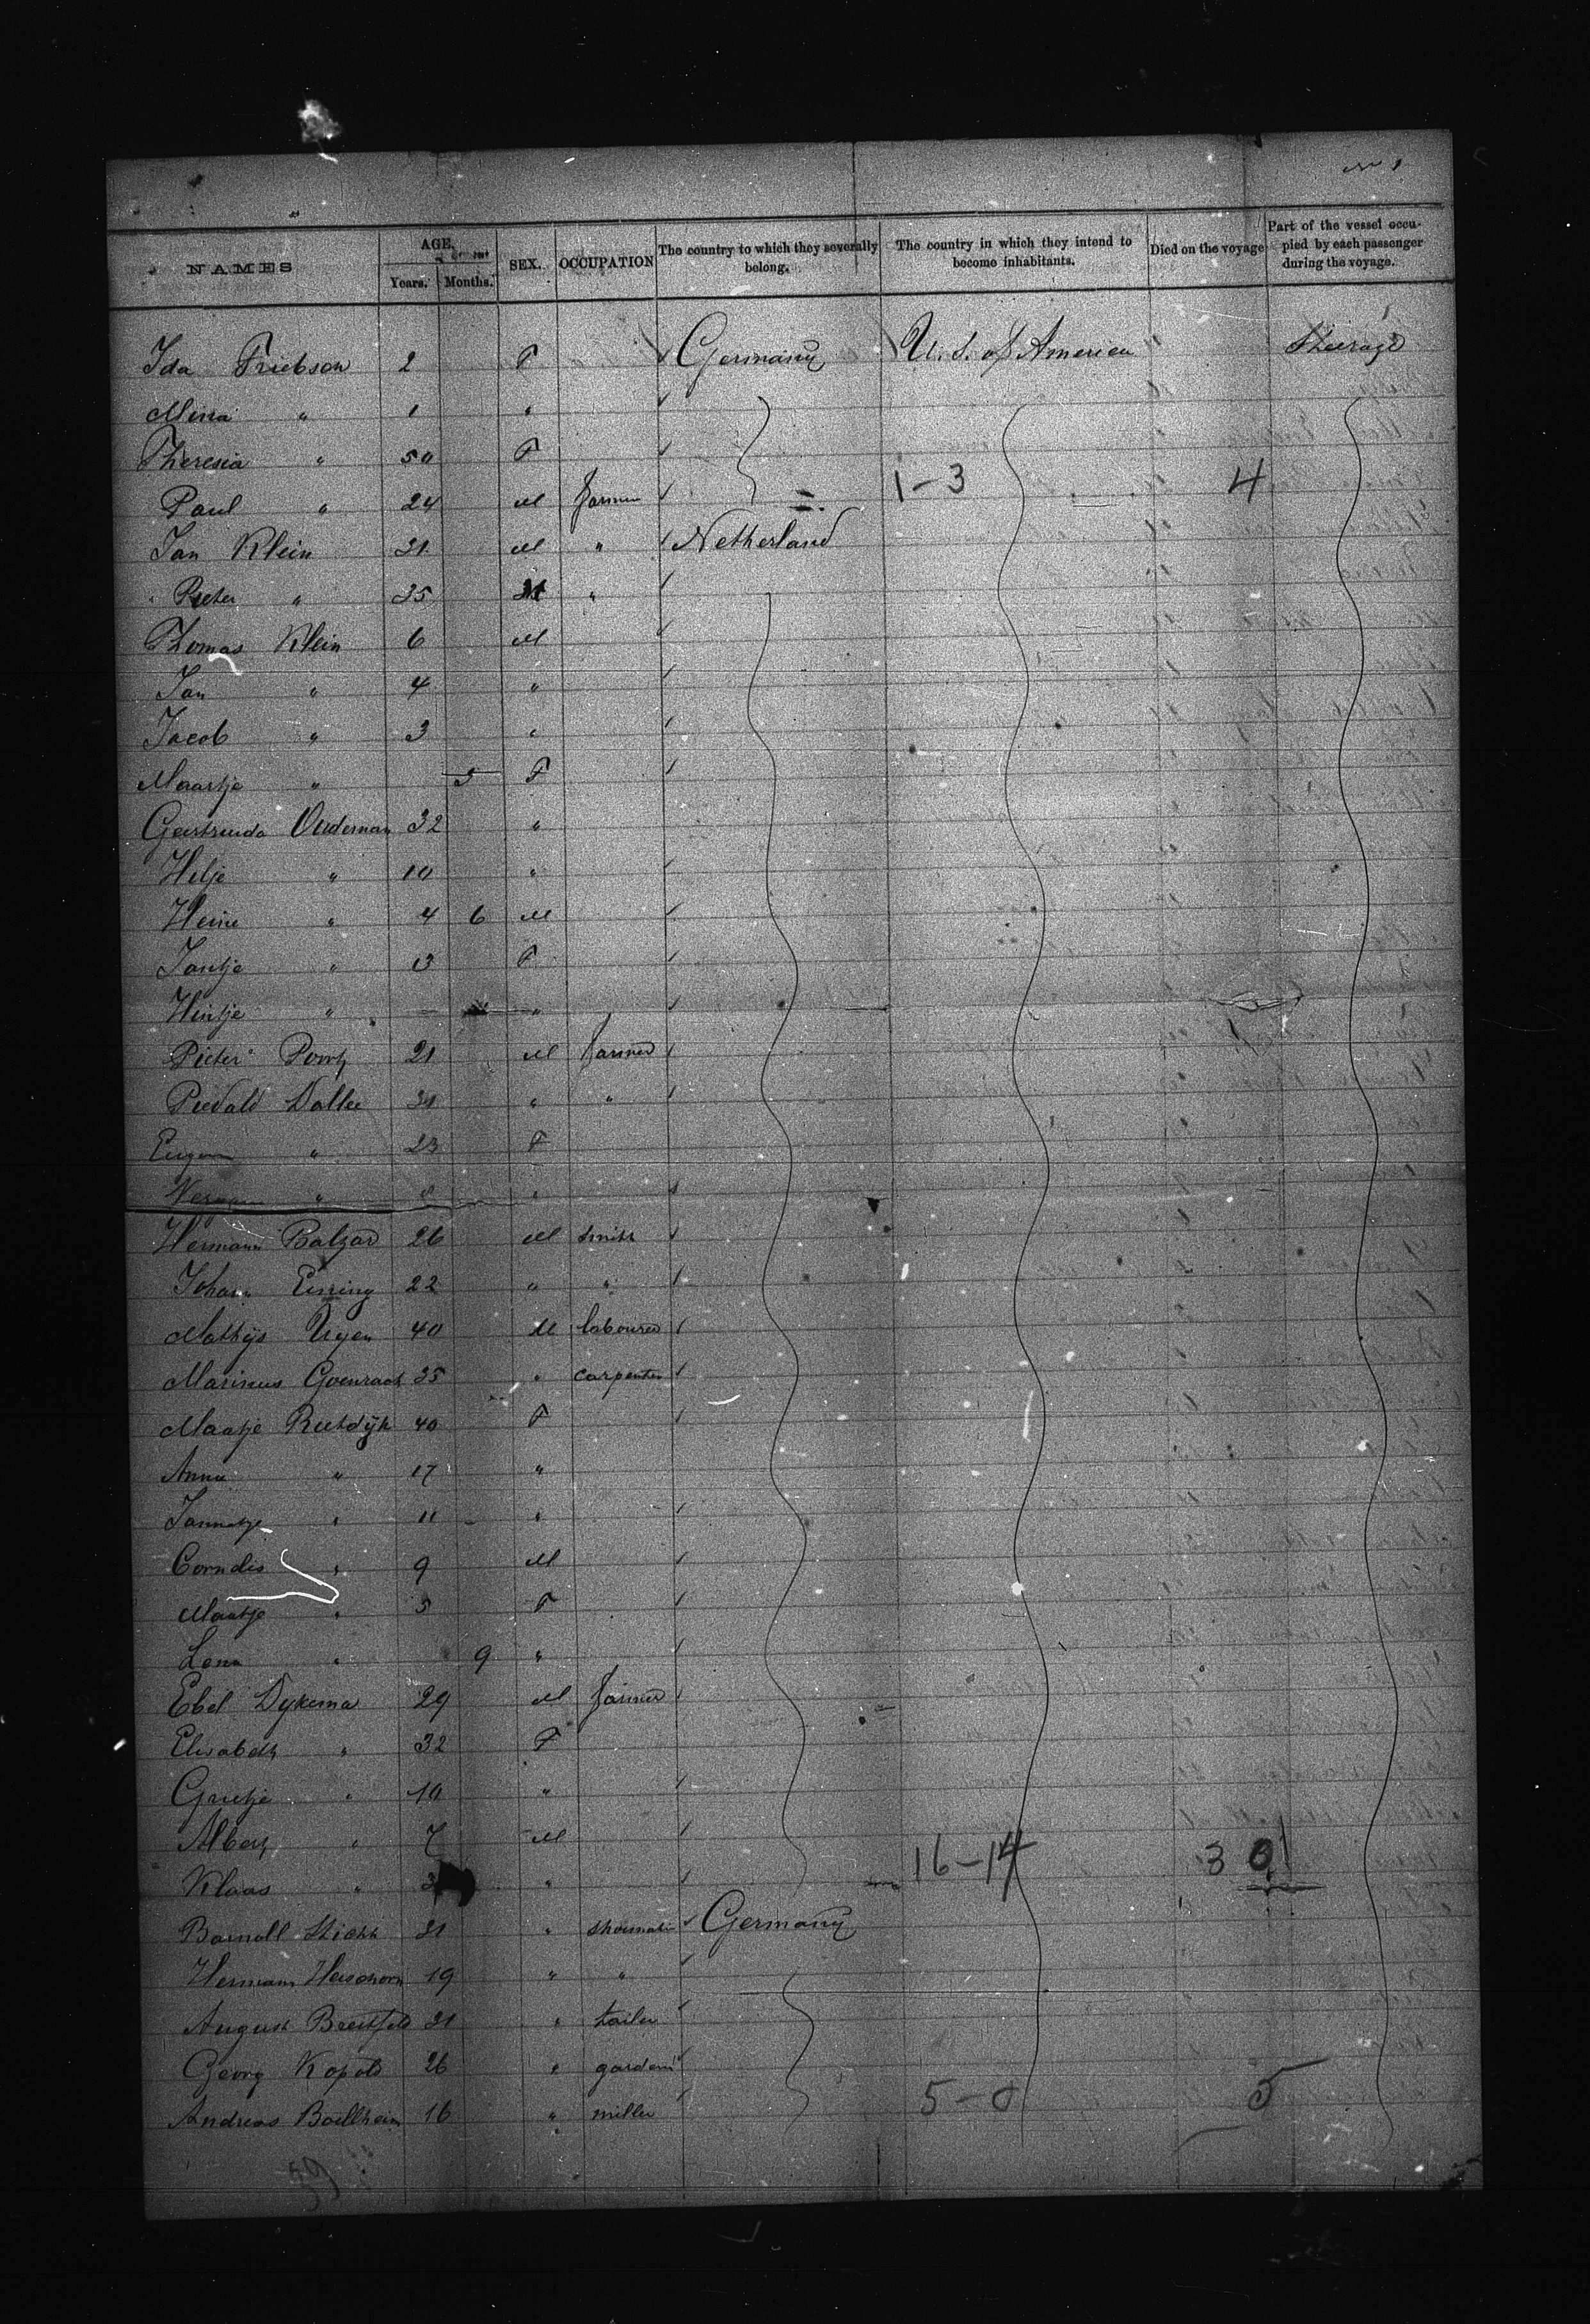 NAMES AGE. Years. Months. SEX. OCCUPATION The country to which they severally belong. The country in which they intend to become inhabitants. Died on the voyage Part of the vessel occupied by each passenger during the voyage.
Ida Friebson 2 F Germany U. S. of America Steerage
Mina " 1 "
Theresia " 50 F
Paul " 24 M farmer 1-3 4
Jan Klein 31 M " Netherland
Pieter " 35 M "
Thomas Klein 6 M
Jan " 4 "
Jacob " 3 "
Maartje " 5 F
Geertruida Oudeman 32 "
Hilje " 10 "
Heine " 4 6 M
Jantje " 13 F
Hintje " "
Pieter 21 M farmer
Dallee 31 " "
" 23 F
" "
Hermann Balzar 26 M smith
Johan 22 " "
Mathijs 40 M labourer
Marinus 35 " carpenter
Maatje 40 F
Anna " 17 "
Jannetje " 11 "
Cornelis " 9 M
Maatje " 5 F
Lena " 9 "
Ebel Dykema 29 M farmer
Elisabeth " 32 F
Grietje " 10 "
Albert " 7 M 16-14 30
Klaas " 3 "
31 " shoemaker Germany
Hermann 19 " "
August Breitfeld 31 " tailer
Georg 26 "
Andreas 16 " miller 5-0 5